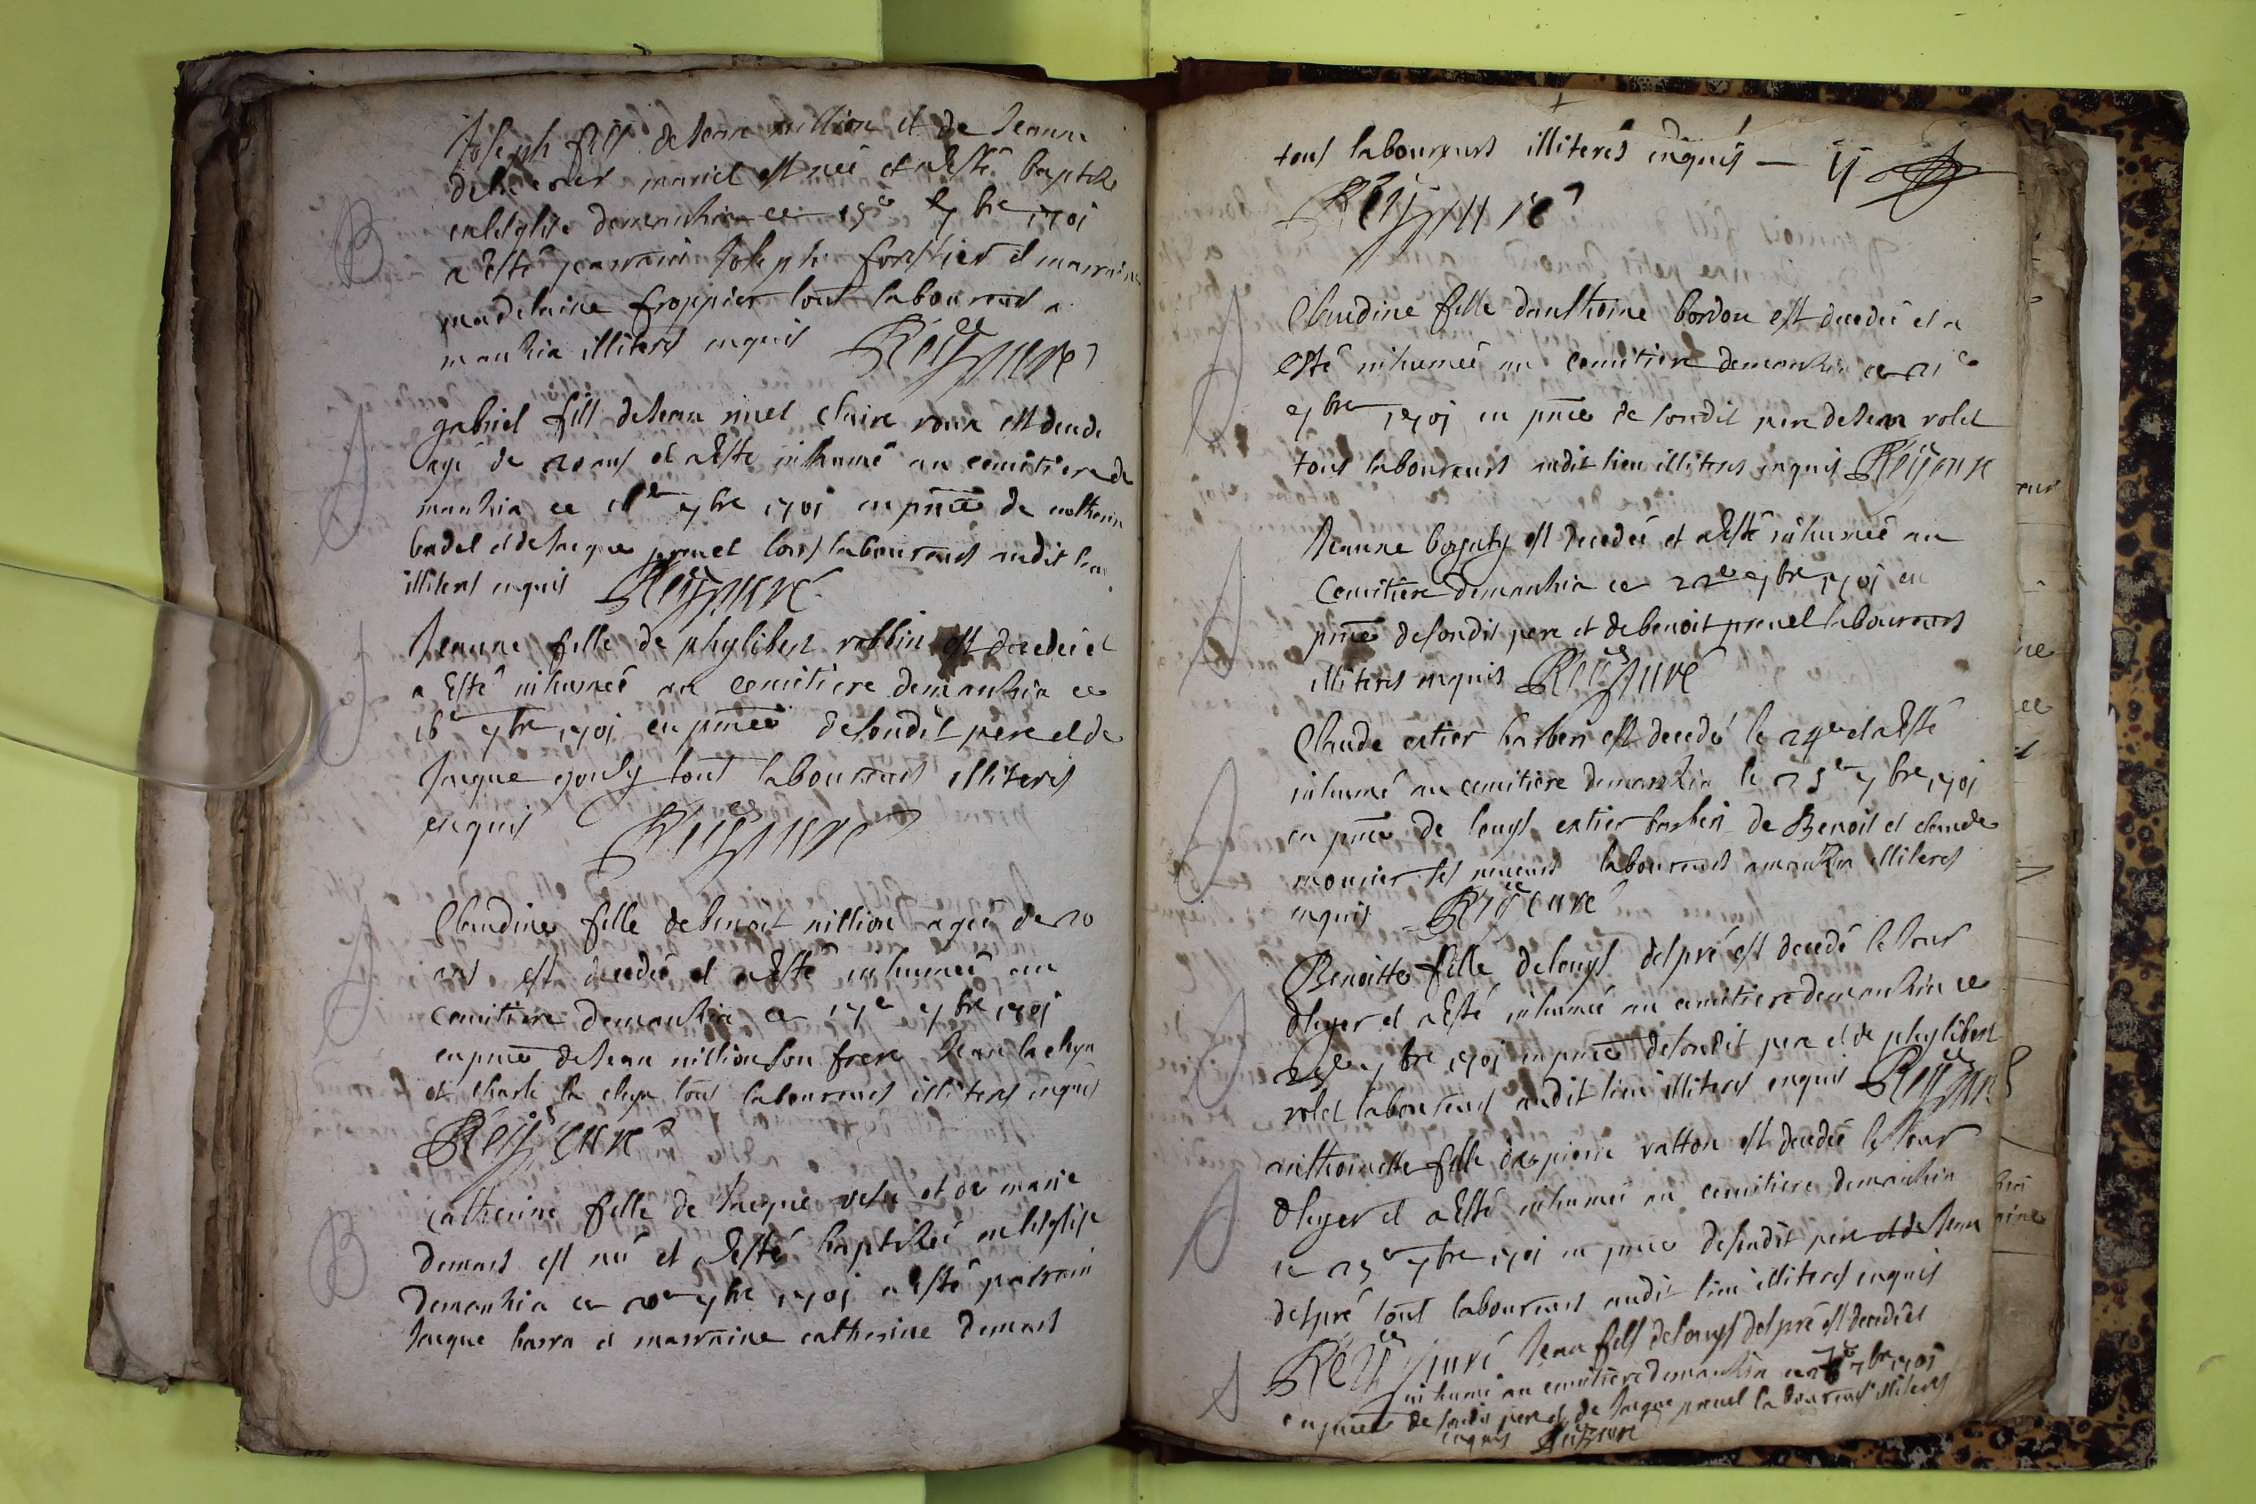 Joseph fils de Jean million et de Jeanne
mariel est née et a Esté baptisé
en leglise demanhia ce 15e 7bre 1701
a esté parrain Joseph forestier et marraine
madelaine froppier tous laboureurs a
manhia illiteres enquis Reÿ curé
gabriel fils de Jean claire est decedé
agé de 20 ans et a Esté inhumé au cemitiere de
manhia ce 7bre 1701 en pnce de
badel et de Jacque prevel tous laboureurs audit lieu
illiteres enquis Reÿ curé
Jeanne fille de phylibert robbin est decedeé et
a Esté inhumeé au cemitiere demanhia ce
16e 7bre 1701 en pnce de sondit pere et de
Jacque gouly tous laboureurs illiteres
enquis Reÿ curé
Claudine fille de benoit million ageé de 20
ans est decedeé et a Esté inhumeé au
cemitiere demanhia ce 17e 7bre 1701
en pnce de Jean million son frere Jean la
et charle la tous laboureurs illiteres enquis
Reÿ curé
Catherine fille de Jacque et de marie
demars est née et a Esté baptiseé en leglise
demanhia ce 20e 7bre 1701 a Esté parrain
Jacque barra et marraine catherine demars
tous laboureurs illiteres enquis
Reÿ curé
Claudine fille danthoine bordon est decedeé et a
Esté inhumeé au cemitiere demanhia ce 21e
7bre 1701 en pnce de sondit pere de Jean rolet
tous laboureurs audit lieu illiteres enquis Reÿ cure
Jeanne est decedeé et a Esté inhumeé au
cemitiere demanhia ce 22e 7bre 1701 en
pnce de sondit pere et de benoit prevel laboureurs
illiteres enquis Reÿ curé
Claude barben est decedé le 24e et a Esté
inhumé au cemitiere demanhia le 25e 7bre 1701
en pnce de louys de Benoit et claude
monier ses neveux laboureurs a manhia illiteres
enquis Reÿ curé
Benoitte fille de louys despré est decedé le Jour
dhyer et a Esté inhumé au cemitiere demanhia ce
7bre 1701 en pnce de sondit pere et de phylibert
rolet laboureurs audit lieu illiteres enquis Reÿ curé
anthoinette fille de pierre ratton est decedeé le Jour
dhyer et a Esté inhumeé au cemitiere demanhia
ce 25e 7bre 1701 en pnce de sondit pere et de Jean
despré tous laboureurs audit lieu illiteres enquis
Reÿ curé Jean fils de louys despré est decedé et
inhumé au cemitiere demanhia ce 7bre 1701
en pnce de sondit pere et de Jacque prevel laboureurs illiteres
enquis Reÿ cure